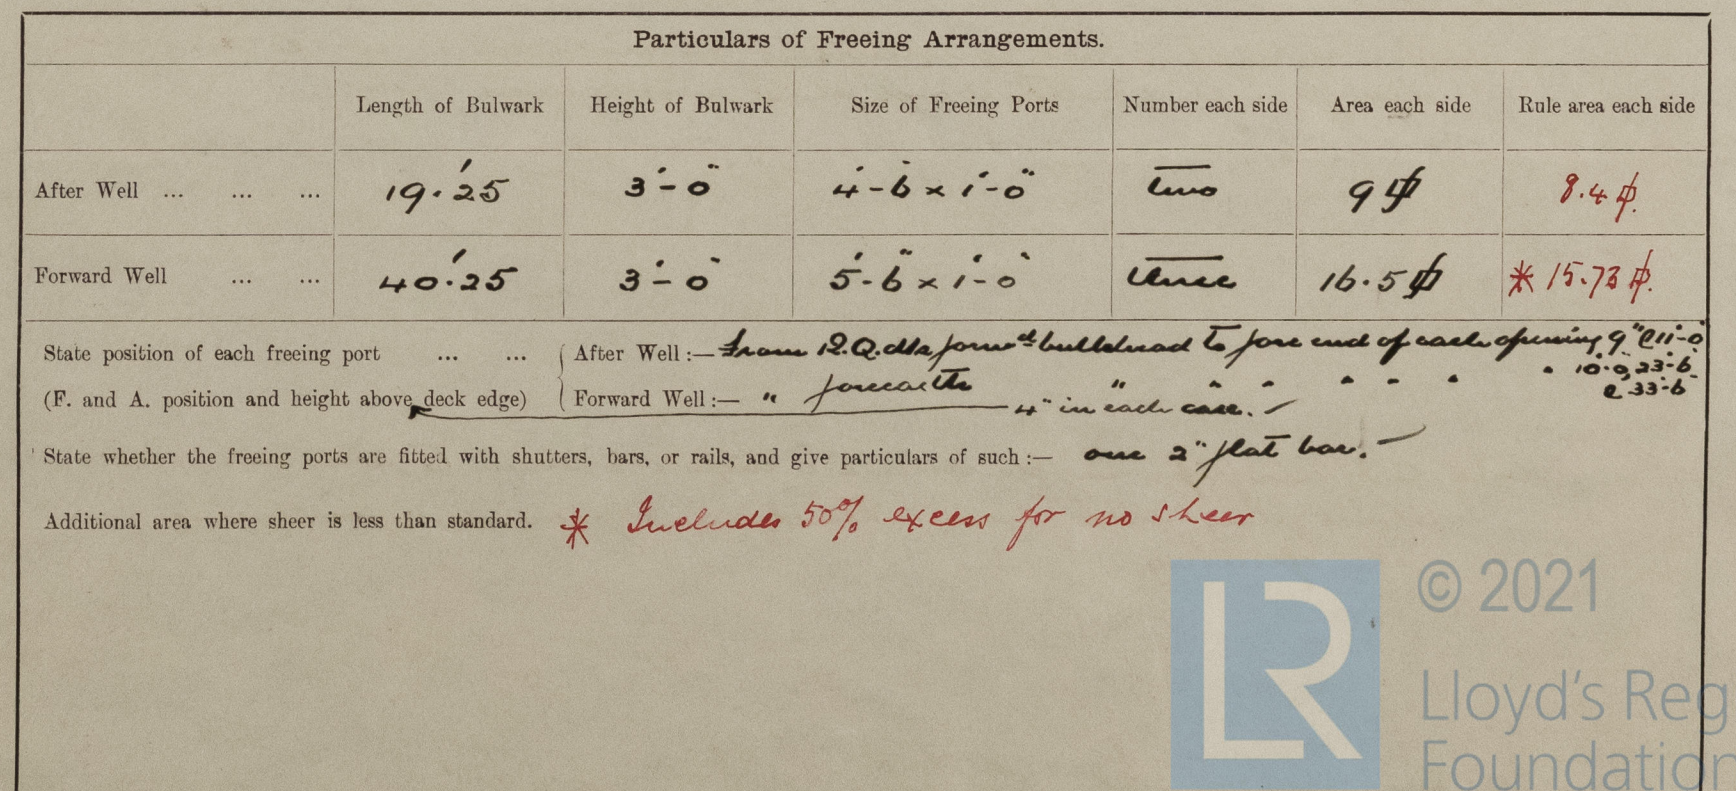 Particulars of Freeing Arrangements.
Length of Bulwark Height of Bulwark Size of Freeing Ports Number each side Area each side Rule area each side
After Well ... ... ... 19.'25 3'-0" 4'-6" x 1'-0" two 9 ⌷ 8.4 ⌷.
Forward Well ... ... 40.'25 3'-0" 5'-6" x 1'-0" three 16.5 ⌷ * 15.73 ⌷.
State position of each freeing port ... ... After Well :— From R.Q.dk forwd bulkhead to fore end of each opening 9" & 11'-0"
10'-0", 23'-6"
(F. and A. position and height above deck edge) Forward Well :— " forecastle " " " " " " "
& 33'-6"
4" in each case.
State whether the freeing ports are fitted with shutters, bars, or rails, and give particulars of such :— one 2" flat bar.
Additional area where sheer is less than standard. * Includes 50% excess for no sheer
© 2021
LR
Lloyd's Reg
Foundation